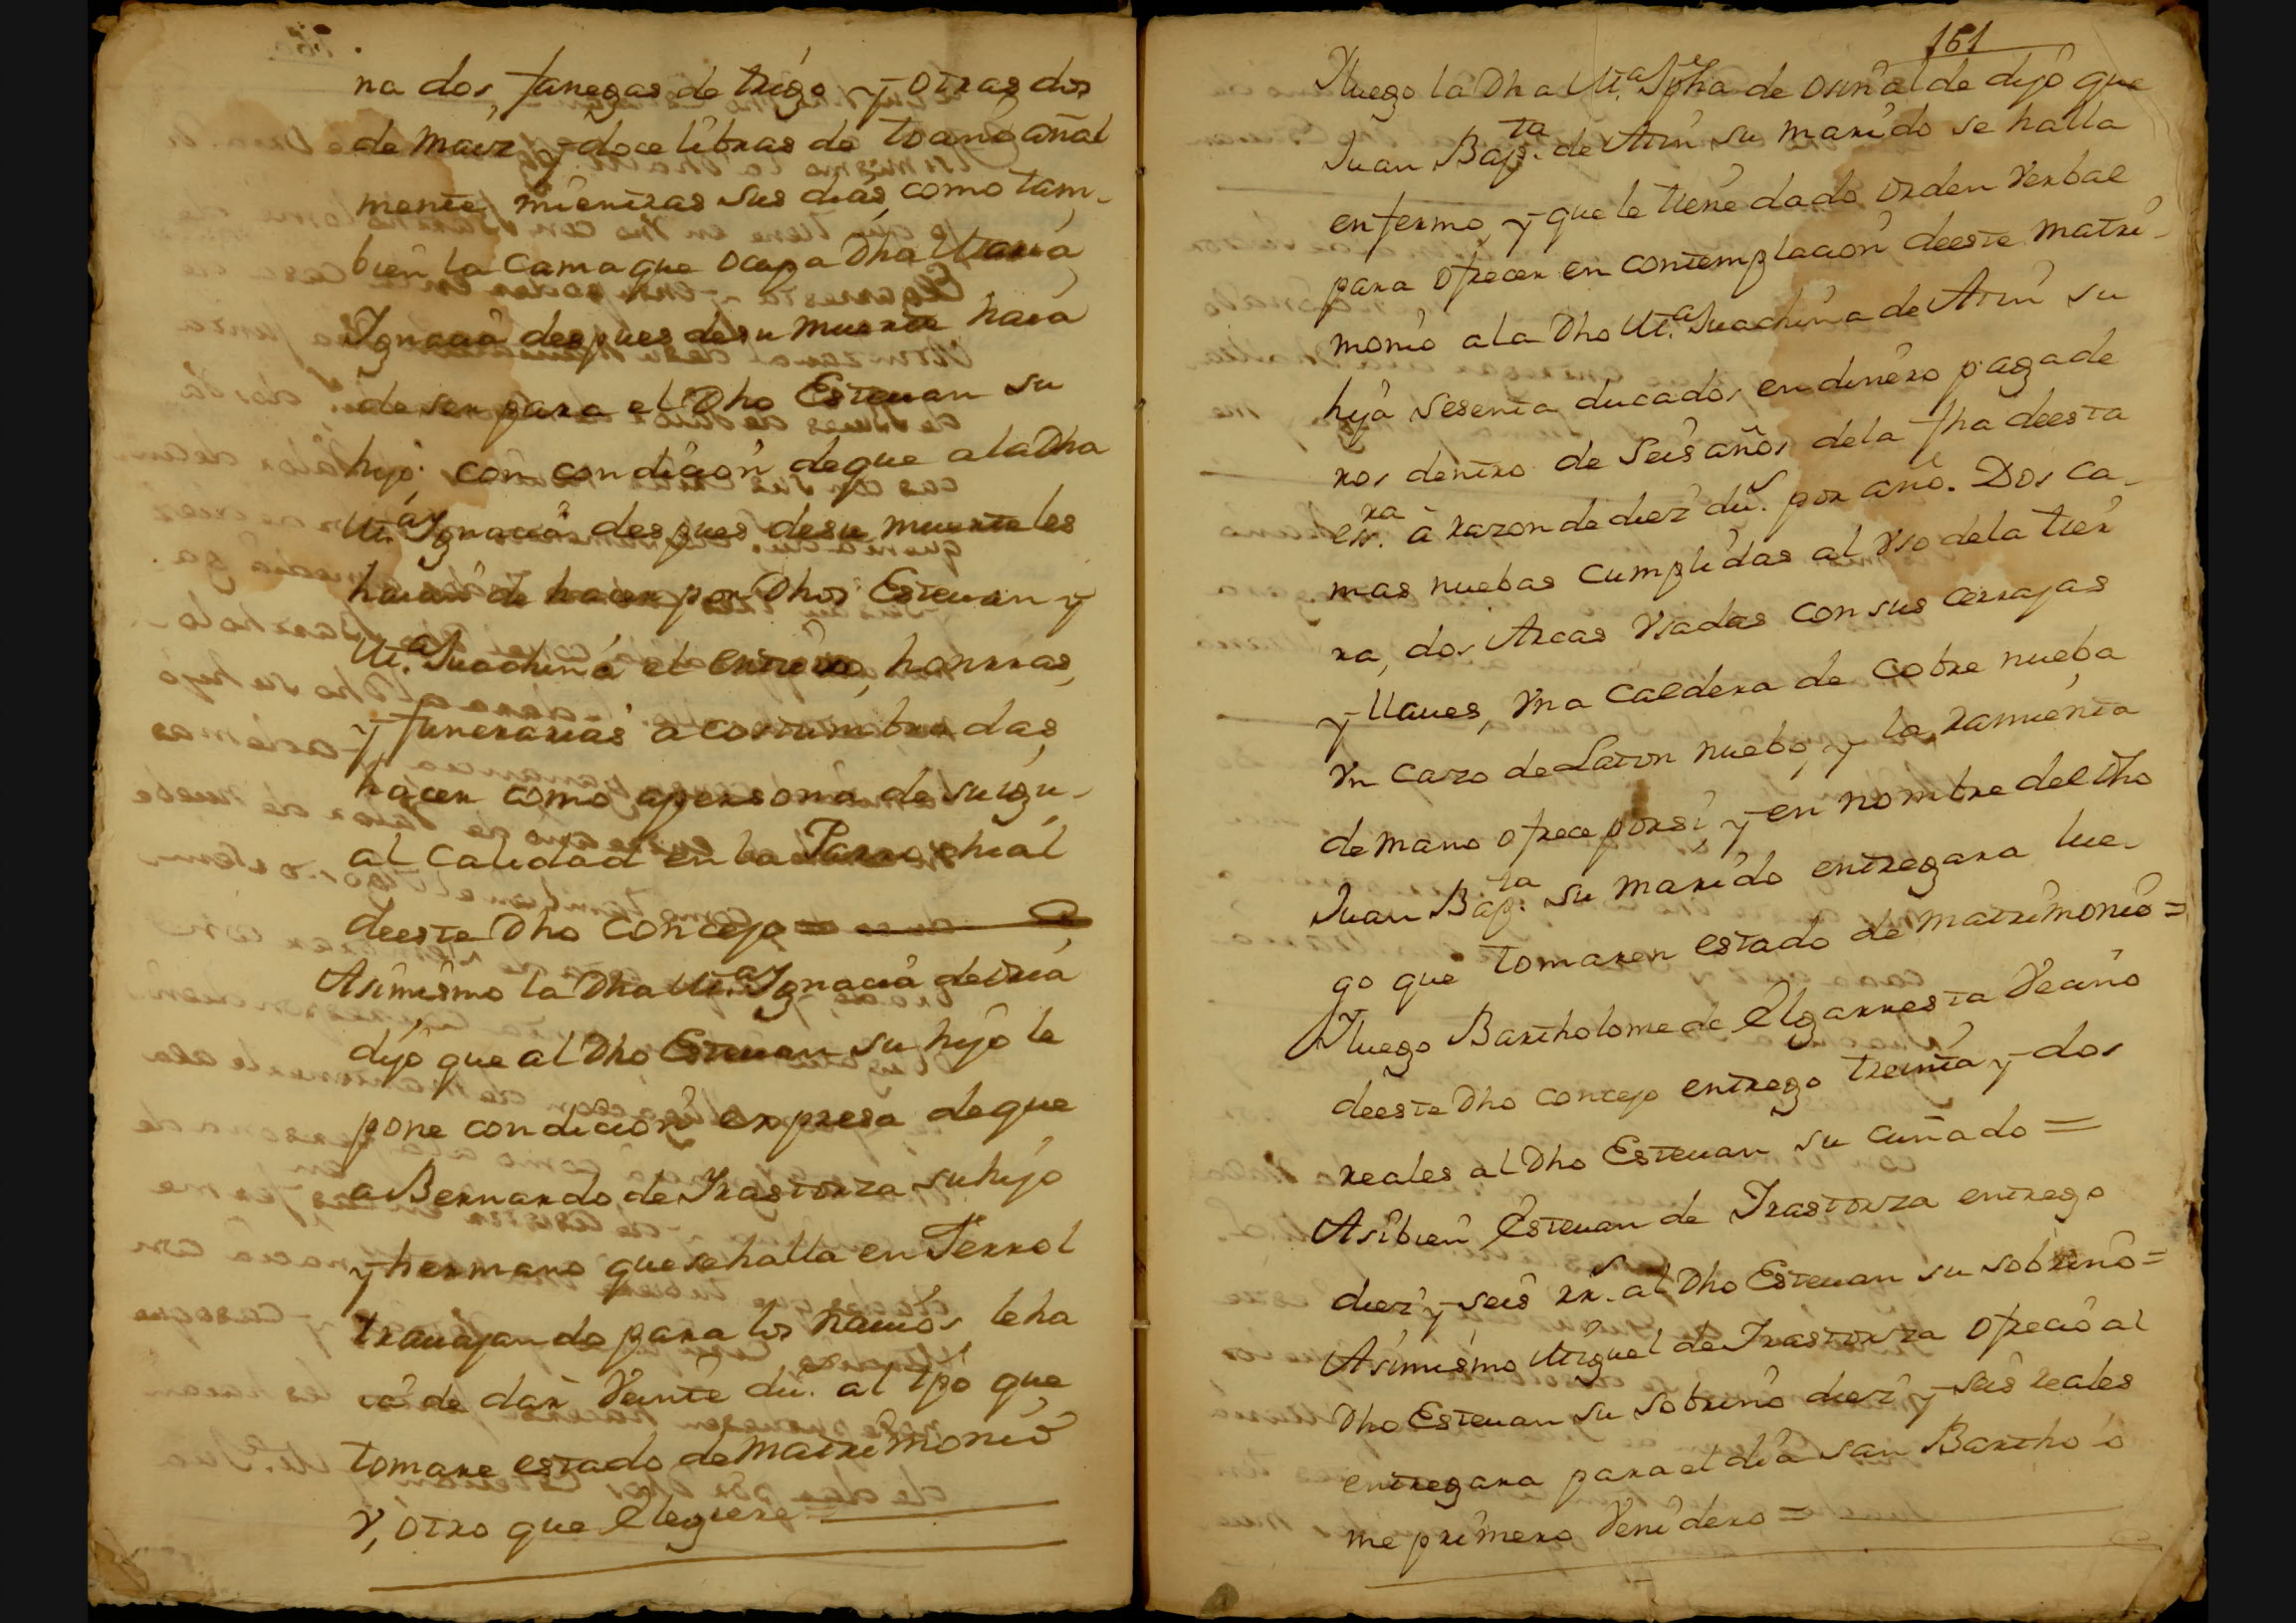 na dos, fanegas de trigo y otras dos
de maiz y doce libras de tocino añal
mente, mientras sus dias, como tam-
bien la cama que ocupa Dha Maria
Ignacia despues desu muerte haia
de ser para el Dho Esteuan su
hijo: con condicion deque ala Dha
M.ª Ignacia despues desu muerte les
haian de hacer por Dhos Esteuan y
M.ª Juachina el entiero, honrras,
y funerarias acostumbradas
hacer como apersona de su igu-
al Calidad en la Parrochial
deeste Dho Concejo =
Asimismo la Dha M.ª Ignacia
dijo que al Dho Esteuan su hijo le
pone condicion expresa deque
a Bernardo de Irastorza su hijo
y hermano que se halla en Ferrol
trauajando para los Nauios leha
ia de dar Veinte du.s al tpo que
tomare estado de Matrimonio
V, otro que Elegiere =
161
Yluego la Dha M.ª Jpha de Osinalde dijo que
Juan Bap.ta de Atin su marido se halla
enfermo, y que le tiene dado orden Verbal
para ofrecer en contemplacion deeste matri-
monio ala Dho M.ª Juachina de Atin su
hija sesenta ducados en dinero pagade
ros dentro de Seis años dela fha deesta
esr.ra à razon de diez du.s por año. Dos ca-
mas nuebas Cumplidas al Vso dela tier
ra, dos Arcas Vsadas con sus cerrajas
y llaues, Vna Caldera de Cobre nueba
Vn cazo de Laton nuebo, y la ramienta
de mano ofrece por si, y en nombre del Dho
Juan Bap.ta su marido entregara lue-
go que tomaren estado de matrimonio =
Yluego Bartholome de Elgarresta Vecino
deeste Dho concejo entrego treinta y dos
reales al Dho Esteuan su cuñado =
Asibien Esteuan de Irastorza entrego
diez y seis rr.s al Dho Esteuan su sobrino =
Asimismo Miguel de Irastorza ofrecio al
Dho Esteuan su sobrino diez y seis reales
entregara para el dia san Bartholo
me primero Venidero =